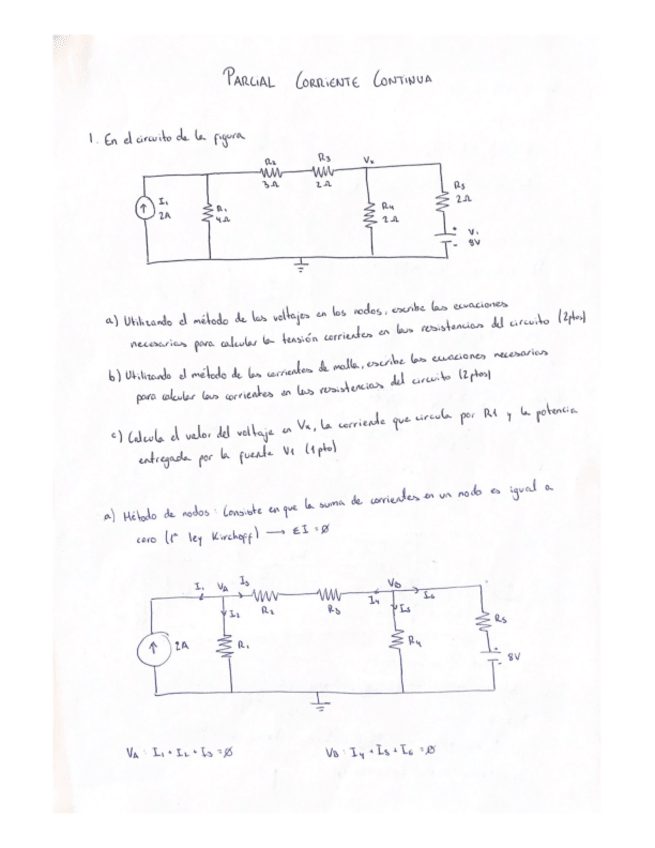 PARCIAL CORRIENTE CONTINUA
1. En el circuito de la figura
R2 R3 Vx
3Ω 2Ω
I1 2A
R1 4Ω
R4 2Ω
R5 2Ω
+ V1
- 8V
a) Utilizando el método de los voltajes en los nodos, escribe las ecuaciones
necesarias para calcular la tensión corrientes en las resistencias del circuito (2ptos)
b) Utilizando el método de las corrientes de malla, escribe las ecuaciones necesarias
para calcular las corrientes en las resistencias del circuito (2ptos)
c) Calcula el valor del voltaje en Vx, la corriente que circula por R1 y la potencia
entregada por la fuente V1 (1pto)
a) Método de nodos: Consiste en que la suma de corrientes en un nodo es igual a
cero (1ª ley Kirchoff) → ΣI = Ø
I1 VA I3 VB
I2 R2 R3 I4 I5 I6
2A R1 R4 R5
+
- 8V
VA : I1 + I2 + I3 = Ø VB : I4 + I5 + I6 = Ø